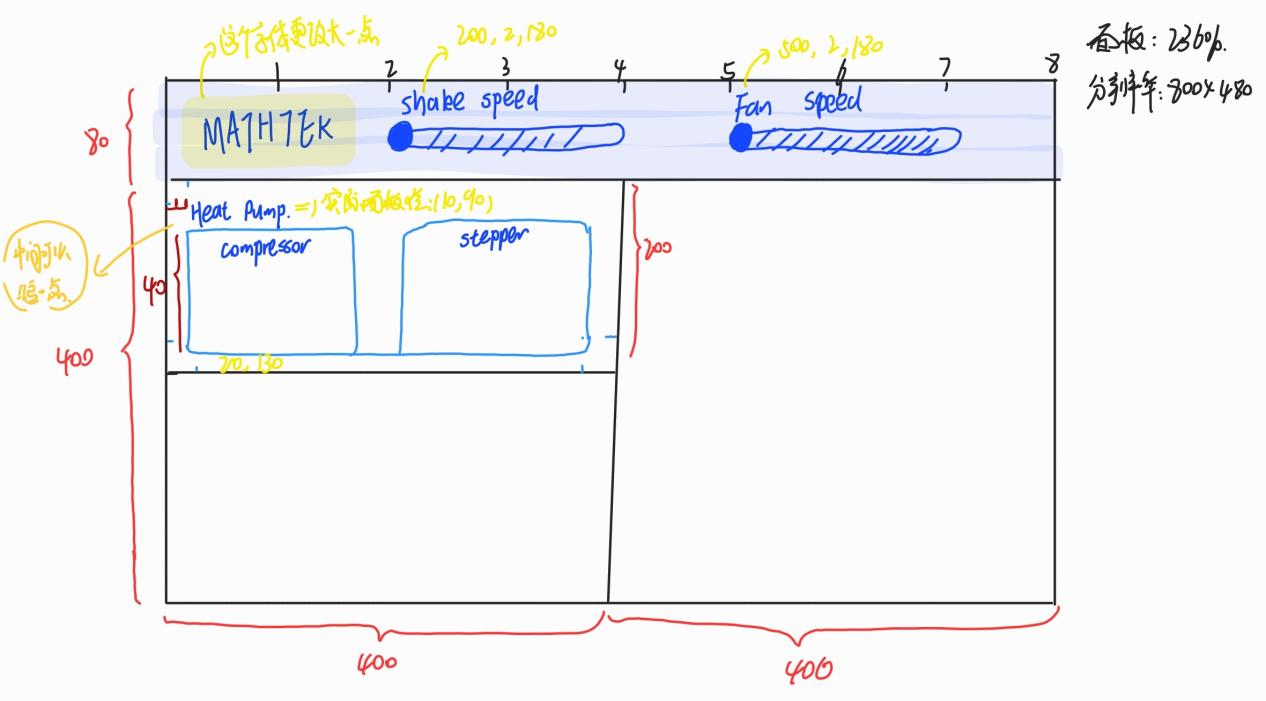 这个字体更改大一点
200, 2, 180
500, 2, 180
面板: 236%.
分辨率: 800×480
2 3 4 5 6 7 8
MATHTEK
shake speed
Fan speed
80
Heat Pump. =) 实际面板是: (10, 90)
compressor
stepper
中间可以
短一点
40
200
400
20, 130
400
400